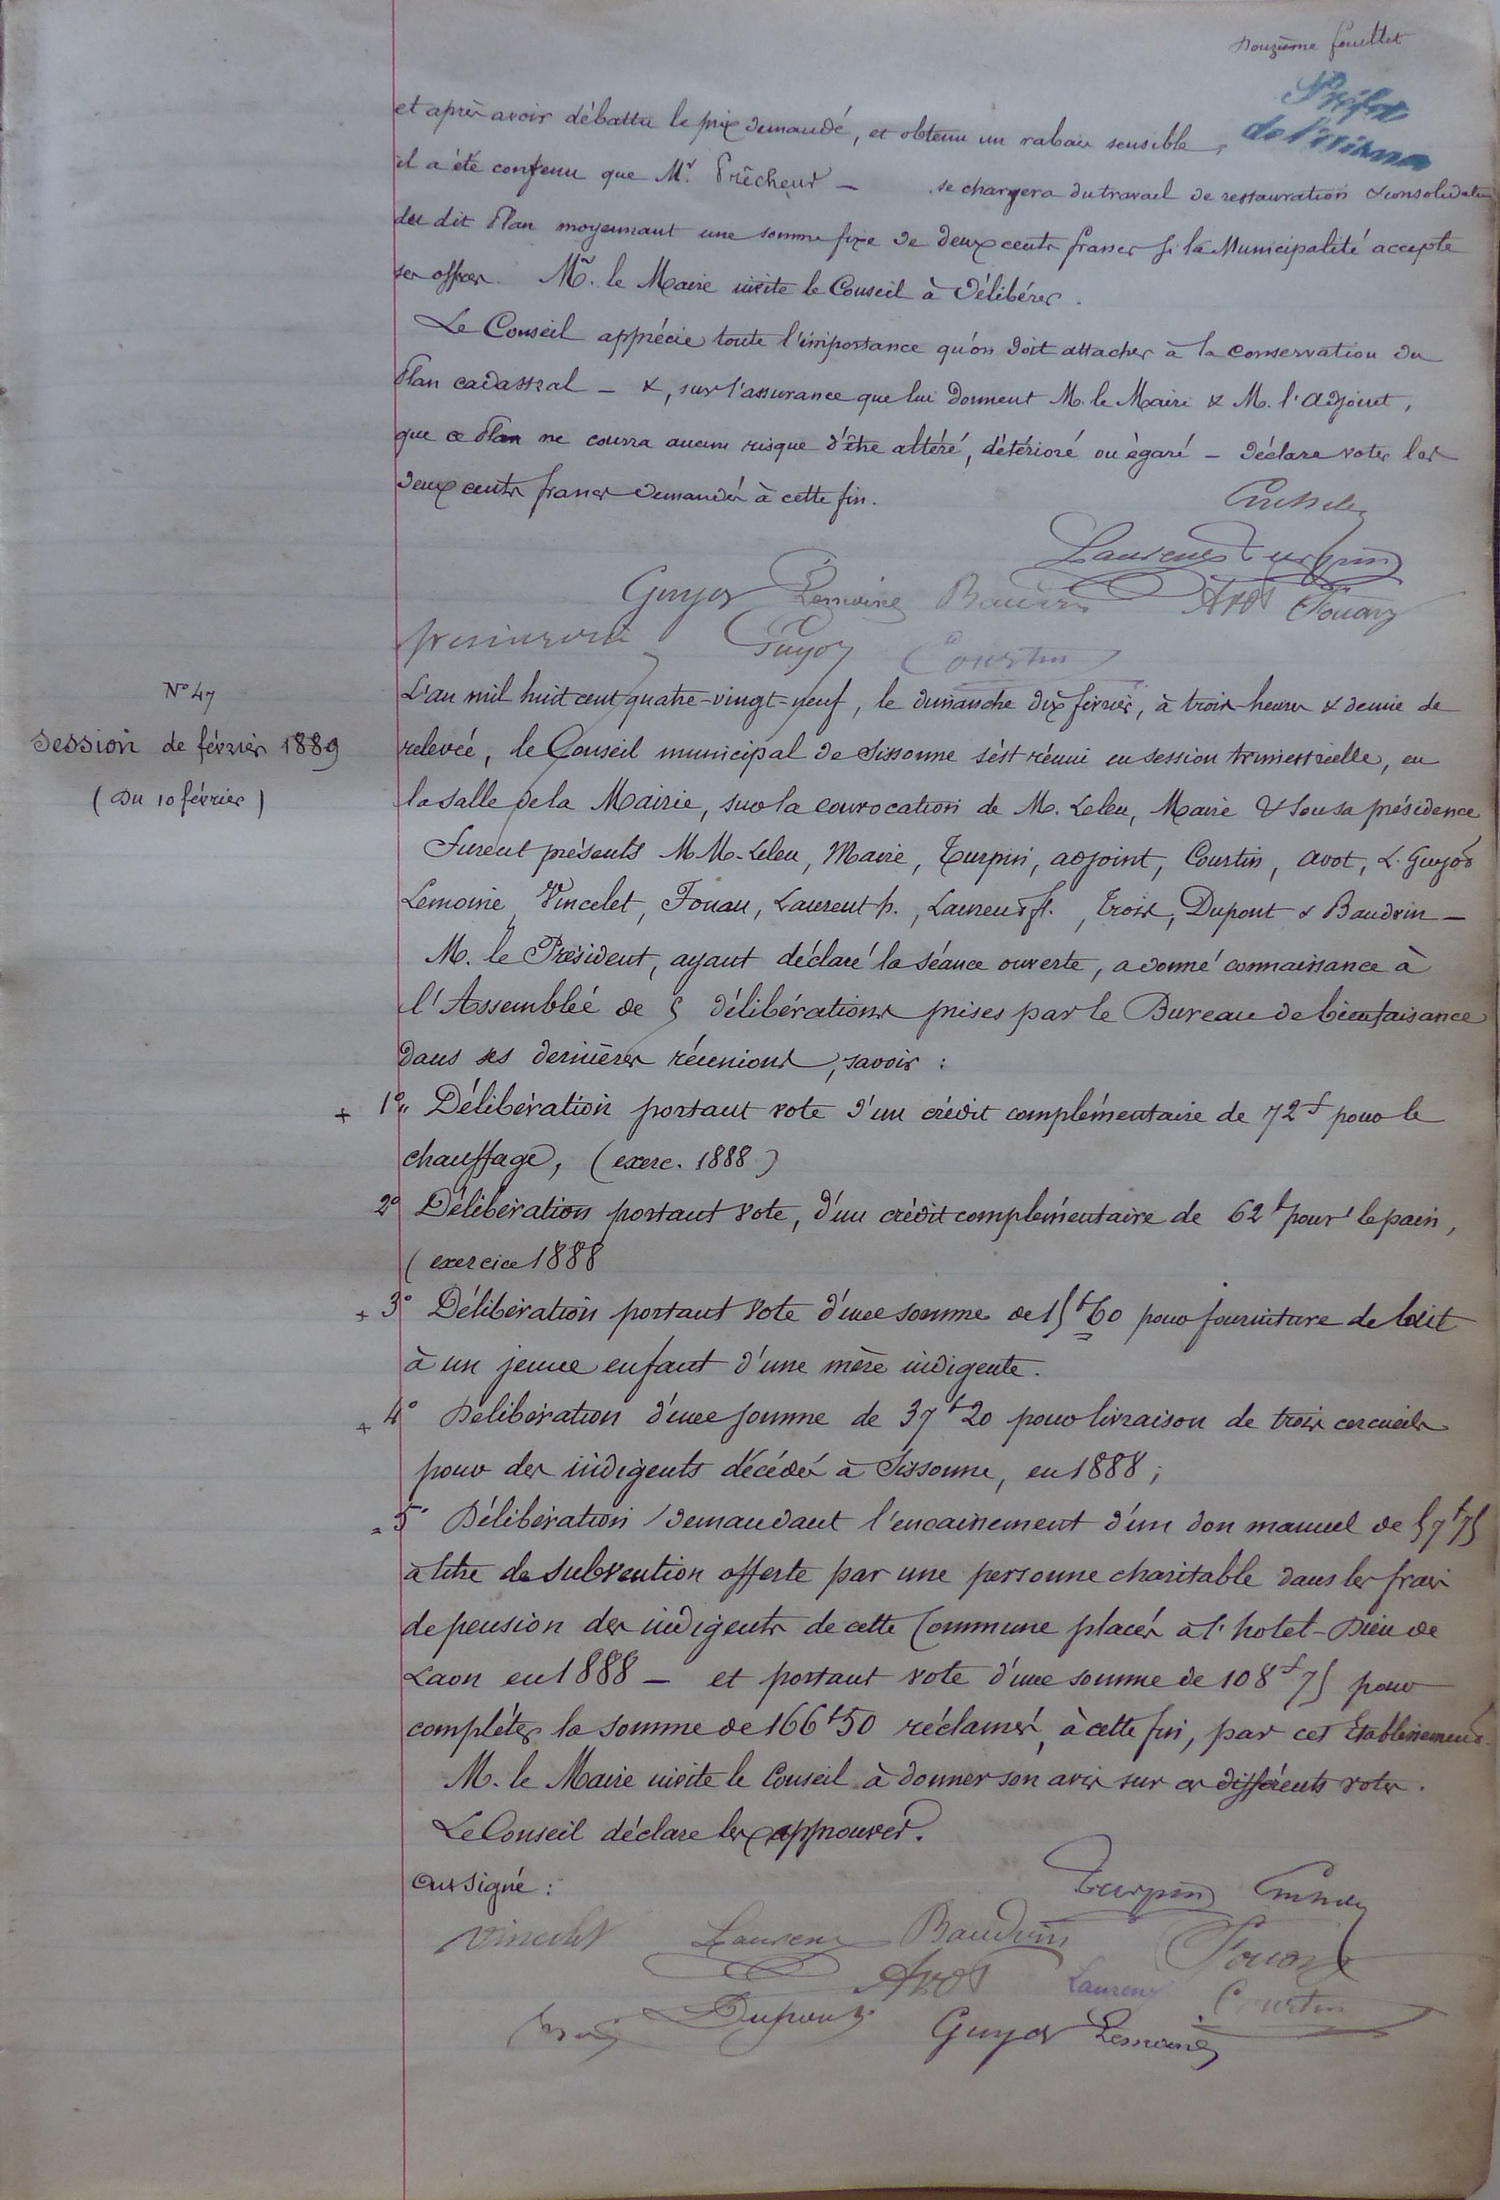 Douzième feuillet
Préfet
de l'Aisne
et après avoir débattu le prix demandé, et obtenu un rabais sensible,
il a été convenu que Mr. Prêcheur — se chargera du travail de restauration & consolidation
du dit Plan moyennant une somme fixe de deux cents francs si la Municipalité accepte
ses offres. Mr. le Maire invite le Conseil à délibérer.
Le Conseil apprécie toute l'importance qu'on doit attacher à la conservation du
Plan cadastral — &, sur l'assurance que lui donnent M. le Maire & M. l'adjoint,
que ce Plan ne courra aucun risque d'être altéré, détérioré ou égaré — déclare voter les
deux cents francs demandés à cette fin.
Laurent Turpin
Guyot Lemoine Baudrin Avot Fouan
Guyot Courtin
N° 47
Session de février 1889
(Du 10 février)
L'an mil huit cent quatre-vingt-neuf, le dimanche dix février, à trois heures & demie de
relevée, le Conseil municipal de Sissonne s'est réuni en session trimestrielle, en
la salle de la Mairie, sur la convocation de M. Leleu, Maire & sous sa présidence
Furent présents MM. Leleu, Maire, Turpin, adjoint, Courtin, Avot, L. Guyot
Lemoine, Vincelet, Fouan, Laurent p., Laurent fl., Trois, Dupont & Baudrin —
M. le Président, ayant déclaré la séance ouverte, a donné connaissance à
l'Assemblée de 5 délibérations prises par le Bureau de bienfaisance
dans ses dernières réunions, savoir :
+ 1° Délibération portant vote d'un crédit complémentaire de 72f pour le
chauffage, (exerc. 1888)
2° Délibération portant vote, d'un crédit complémentaire de 62f pour le pain,
(exercice 1888
+ 3° Délibération portant vote d'une somme de 15f60 pour fourniture de lait
à un jeune enfant d'une mère indigente.
+ 4° Délibération d'une somme de 37f20 pour livraison de trois cercueils
pour des indigents décédés à Sissonne, en 1888;
= 5° Délibération demandant l'encaissement d'un don manuel de 57f75
à titre de subvention offerte par une personne charitable dans les frais
de pension des indigents de cette Commune placés à l'hotel-Dieu de
Laon en 1888 — et portant vote d'une somme de 108f75 pour
compléter la somme de 166f50 réclamés, à cette fin, par cet Etablissement.
M. le Maire invite le Conseil à donner son avis sur ces différents votes.
Le Conseil déclare les approuver.
Ont signé :
Turpin
Vincelet Laurent Baudrin Fouan
Avot Laurent Courtin
Dupont Guyot Lemoine